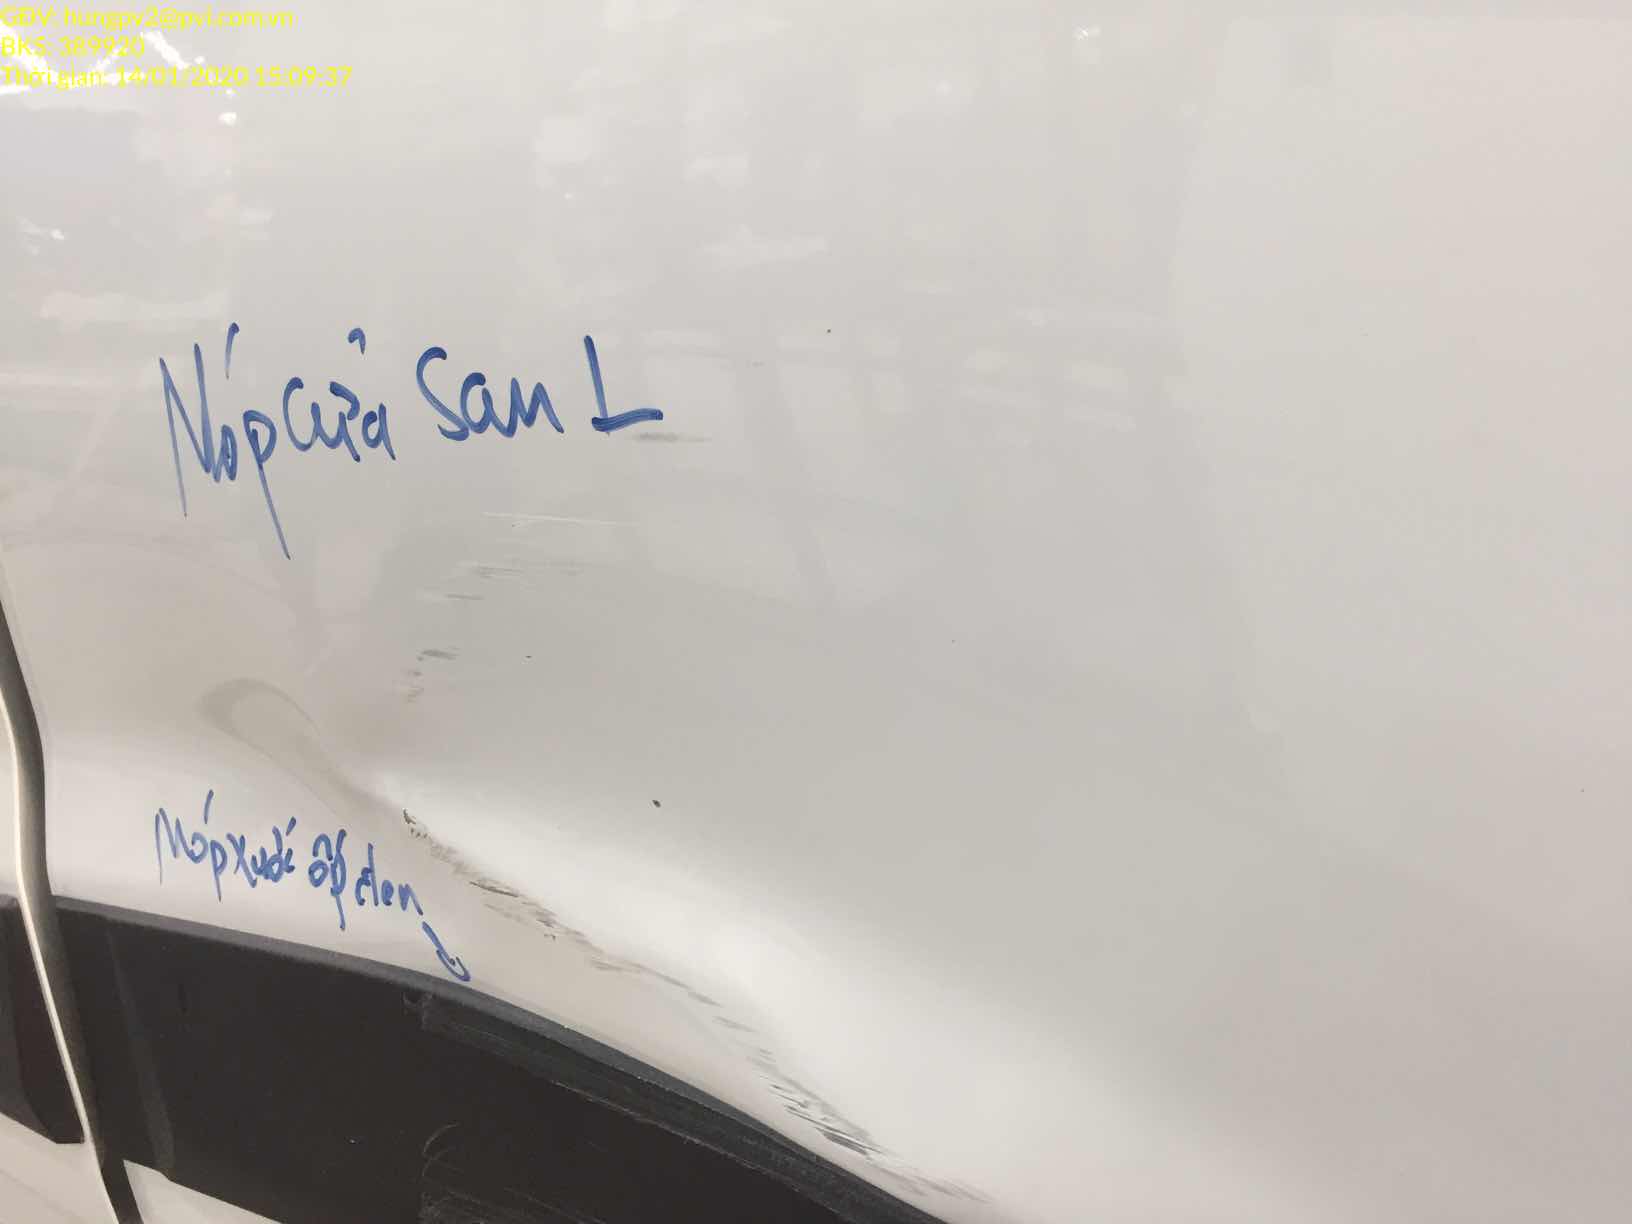 GĐV: hungpv2@pvi.com.vn
BKS: 389920
Thời gian: 14/01/2020 15:09:37
Móp cửa sau L
Móp xước ốp đen